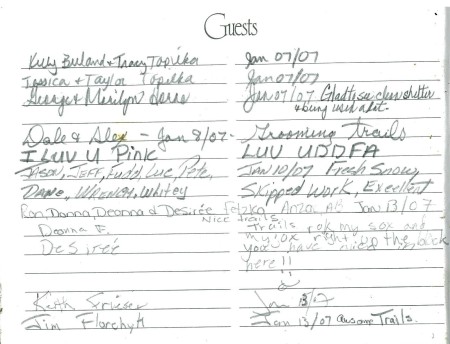 Guests
Kirby Burland & Tracy Topilka Jan 07/07
Jessica + Taylor Topilka Jan 07/07
George & Marilyn Jan 07/07 Glad to see clean shelter
& being used a lot.
Dale & Alex - Jan 8/07 - Grooming Trails
I LUV U PINK LUV UDDFA
JASON, JEFF, Fudd, Luc, Pete, JAN 10/07 Fresh Snow,
Dave, Wrench, Whitey Skipped Work, Excellent
Ron, Donna, Deanna & Desirée Felzka Anzac, AB Jan 13/07
Nice trails
Deanna F. Trails rok my sox and
my sox right up the
Desirée you have nice
here!!
Keith Jan 13/07
Jim Jan 13/07 awsome Trails.